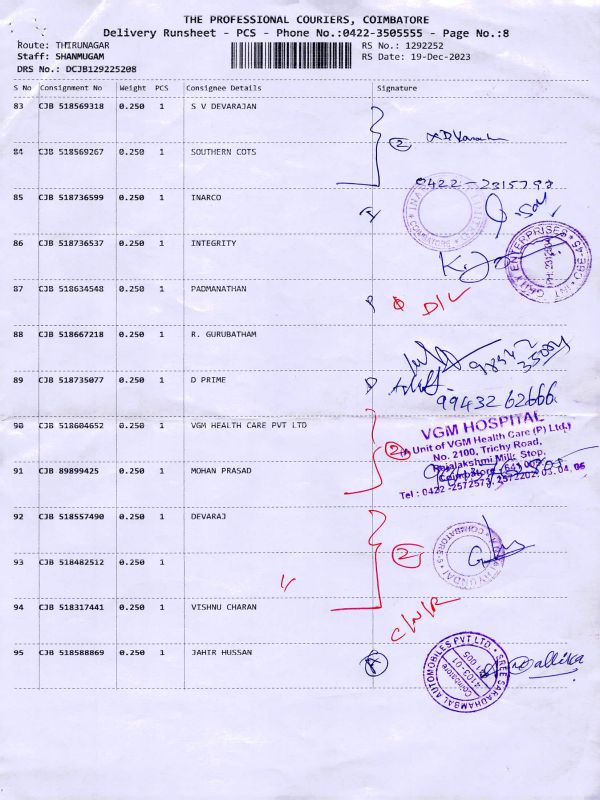 THE PROFESSIONAL COURIERS, COIMBATORE
Delivery Runsheet - PCS - Phone No.:0422-3505555 - Page No.:8
Route: THIRUNAGAR
RS No.: 1292252
Staff: SHANMUGAM
RS Date: 19-Dec-2023
DRS No.: DCJB129225208
S No Consignment No Weight PCS Consignee Details Signature
83 CJB 518569318 0.250 1 S V DEVARAJAN
2
84 CJB 518569267 0.250 1 SOUTHERN COTS
0422-2315798
85 CJB 518736599 0.250 1 INARCO
COIMBATORE
86 CJB 518736537 0.250 1 INTEGRITY
INTEGRITY ENTERPRISES
87 CJB 518634548 0.250 1 PADMANATHAN
D/L
88 CJB 518667218 0.250 1 R. GURUBATHAM
98342
35004
89 CJB 518735077 0.250 1 D PRIME
99432 62666
90 CJB 518604652 0.250 1 VGM HEALTH CARE PVT LTD
VGM HOSPITAL
(A Unit of VGM Health Care (P) Ltd.)
No. 2100, Trichy Road,
Rajalakshmi Mills Stop,
Coimbatore - 641 005
Tel : 0422 -2572573, 2572202 03, 04, 05
2
91 CJB 89899425 0.250 1 MOHAN PRASAD
92 CJB 518557490 0.250 1 DEVARAJ
2
HYUNDAI COIMBATORE-5
93 CJB 518482512 0.250 1
94 CJB 518317441 0.250 1 VISHNU CHARAN
C/N/R
95 CJB 518588869 0.250 1 JAHIR HUSSAN
SREE SARADHAMBAL AUTOMOBILES PVT LTD
Coimbatore